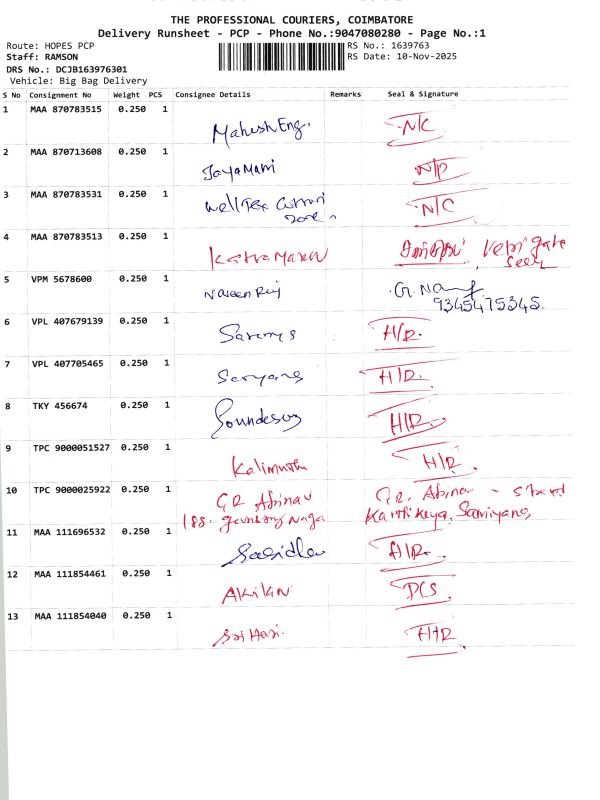 THE PROFESSIONAL COURIERS, COIMBATORE
Delivery Runsheet - PCP - Phone No.:9047080280 - Page No.:1
Route: HOPES PCP
Staff: RAMSON
DRS No.: DCJB163976301
Vehicle: Big Bag Delivery
RS No.: 1639763
RS Date: 10-Nov-2025
S No Consignment No Weight PCS Consignee Details Remarks Seal & Signature
1 MAA 870783515 0.250 1 Mahesh Eng. N/C
2 MAA 870713608 0.250 1 JayaMani N/D
3 MAA 870783531 0.250 1 N/C
4 MAA 870783513 0.250 1
5 VPM 5678600 0.250 1 Naveen Raj G. Nam
9345475345
6 VPL 407679139 0.250 1 H/D.
7 VPL 407705465 0.250 1 H/D.
8 TKY 456674 0.250 1 H/D.
9 TPC 9000051527 0.250 1 Kalimuthu H/D.
10 TPC 9000025922 0.250 1 GR Abinav GR. Abinav -
188.
11 MAA 111696532 0.250 1 H/D.
12 MAA 111854461 0.250 1 Akilan DCS.
13 MAA 111854040 0.250 1 Sri Hari. H/D